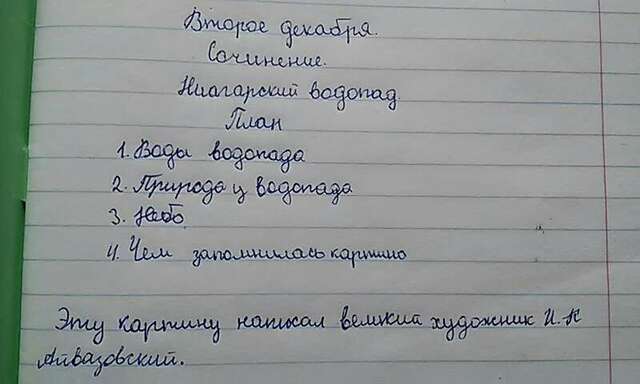 Второе декабря.
Сочинение.
Ниагарский водопад
План
1. Воды водопада
2. Природа у водопада
3. Небо
4. Чем запомнилась картина
Эту картину написал великий художник И. К
Айвазовский.